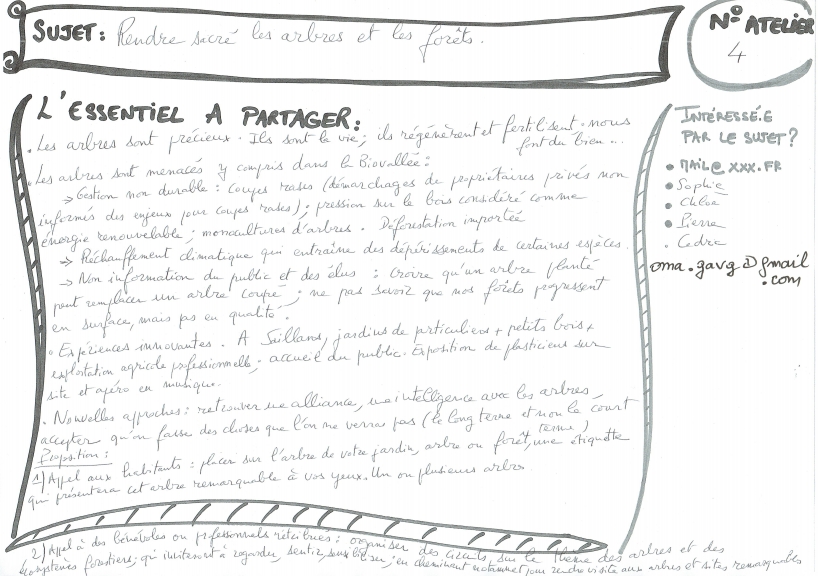 SUJET: Rendre sacré les arbres et les forêts.
N° ATELIER
4
L'ESSENTIEL A PARTAGER:
. Les arbres sont précieux. Ils sont la vie; ils régénèrent et fertilisent. nous
font du bien...
. Les arbres sont menacés y compris dans la Biovallée:
→ Gestion non durable: coupes rases (démarchages de propriétaires privés non
informés des enjeux pour coupes rases); pression sur le bois considéré comme
énergie renouvelable; monocultures d'arbres. Déforestation importée
→ Réchauffement climatique qui entraîne des dépérissements de certaines espèces.
→ Non information du public et des élus: croire qu'un arbre planté
peut remplacer un arbre coupé; ne pas savoir que nos forêts progressent
en surface, mais pas en qualité.
. Expériences innovantes. A Saillans, jardins de particuliers + petits bois +
exploitation agricole professionnelle; accueil du public. Exposition de plasticiens sur
site et apéro en musique.
. Nouvelles approches: retrouver une alliance, une intelligence avec les arbres,
accepter qu'on fasse des choses que l'on ne verra pas (le long terme et non le court
terme)
Proposition:
1) Appel aux habitants: placer sur l'arbre de votre jardin, arbre ou forêt, une étiquette
qui présentera cet arbre remarquable à vos yeux. Un ou plusieurs arbres
2) Appel à des bénévoles ou professionnels rétribués: organiser des circuits sur le thème des arbres et des
écosystèmes forestiers, qui inviteront à regarder, sentir, en cheminant notamment pour rendre visite aux arbres et sites remarquables
INTÉRESSÉ.E
PAR LE SUJET?
• MAIL@XXX.FR
• Sophie
• Chloé
• Pierre
. Cedric
oma.gavg@gmail
.com